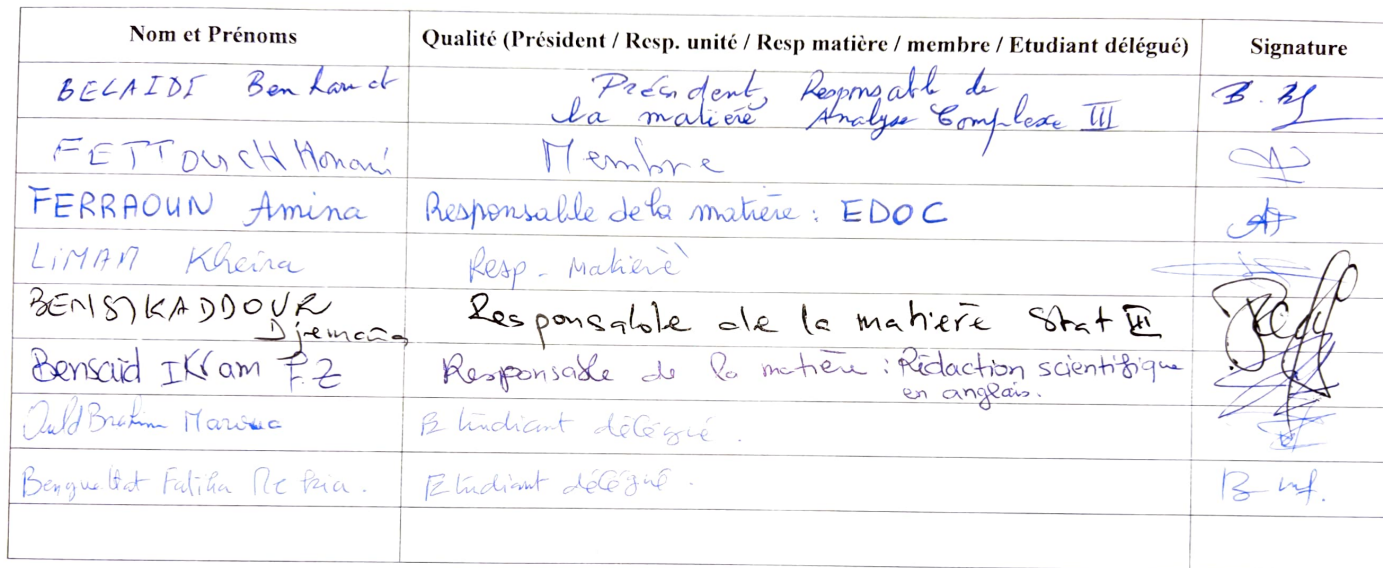 Nom et Prénoms Qualité (Président / Resp. unité / Resp matière / membre / Etudiant délégué) Signature
BELAIDI Président, Responsable de
la matière Analyse Complexe III
FETTOUCH Membre
FERRAOUN Amina Responsable de la matière : EDOC
LIMAM Kheira Resp - Matière
BENSIKADDOUR Responsable de la matière Stat III
Djemaia
Bensaid IKram F.Z Responsable de la matière : Rédaction scientifique
en anglais.
Ould Brahim Maroua Etudiant délégué.
Fatiha Etudiant délégué.